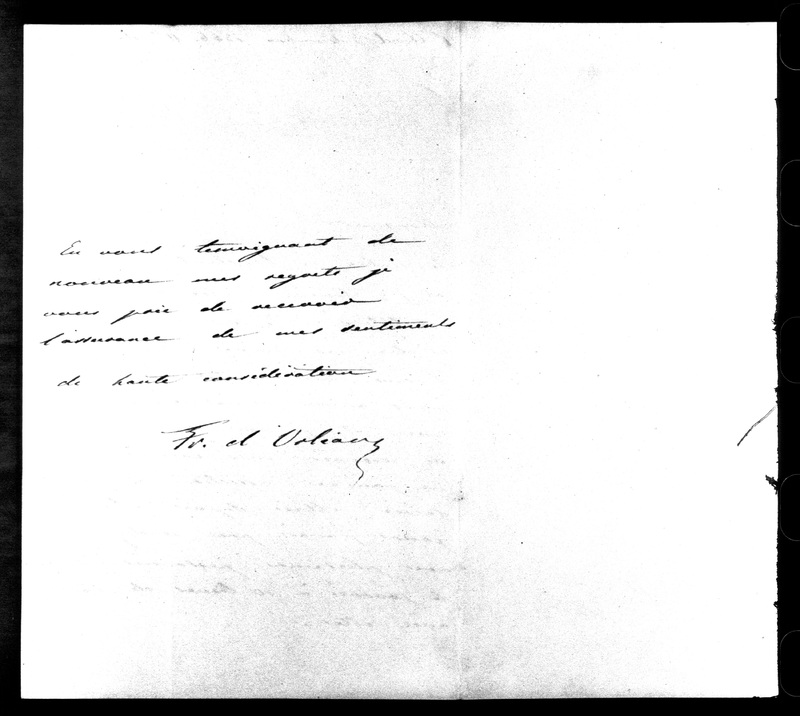 En vous temoignant de
nouveau mes regrets je
vous prie de recevoir
l'assurance de mes sentiments
de haute considération
Fr. d'Orléans